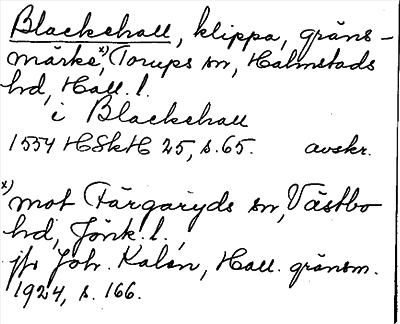 Blackehall, klippa, gräns-
märke,ˣ⁾ Torups sn, Halmstads
hd, Hall. l.
i Blackehall
1554 HSkH 25, s. 65. avskr.
ˣ⁾ mot Färgaryds sn, Västbo
hd, Jönk. l.
jfr Joh. Kalén, Hall. gränsm.
1924, s. 166.